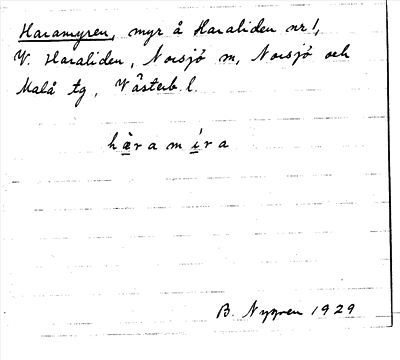 Haramyren, myr å Haraliden nr 1,
V. Haraliden, Norsjö sn, Norsjö och
Malå tg, Västerb. l.
hàramíra
B. Nygren 1929